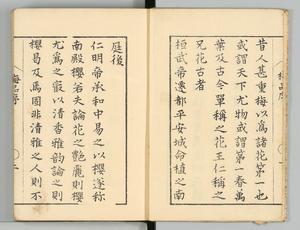 昔人甚重梅以爲諸花第一也
或謂天下尤物或謂第一春萬
葉及古今單稱之花王仁稱之
兄花古者
桓武帝遷都平安城命植之南
庭後
仁明帝承和中易之以櫻遂稱
南殿櫻若夫論花之艷麗則櫻
尤爲之最以清香雅韵論之則
櫻曷及焉固非清雅之人則不
梅品序